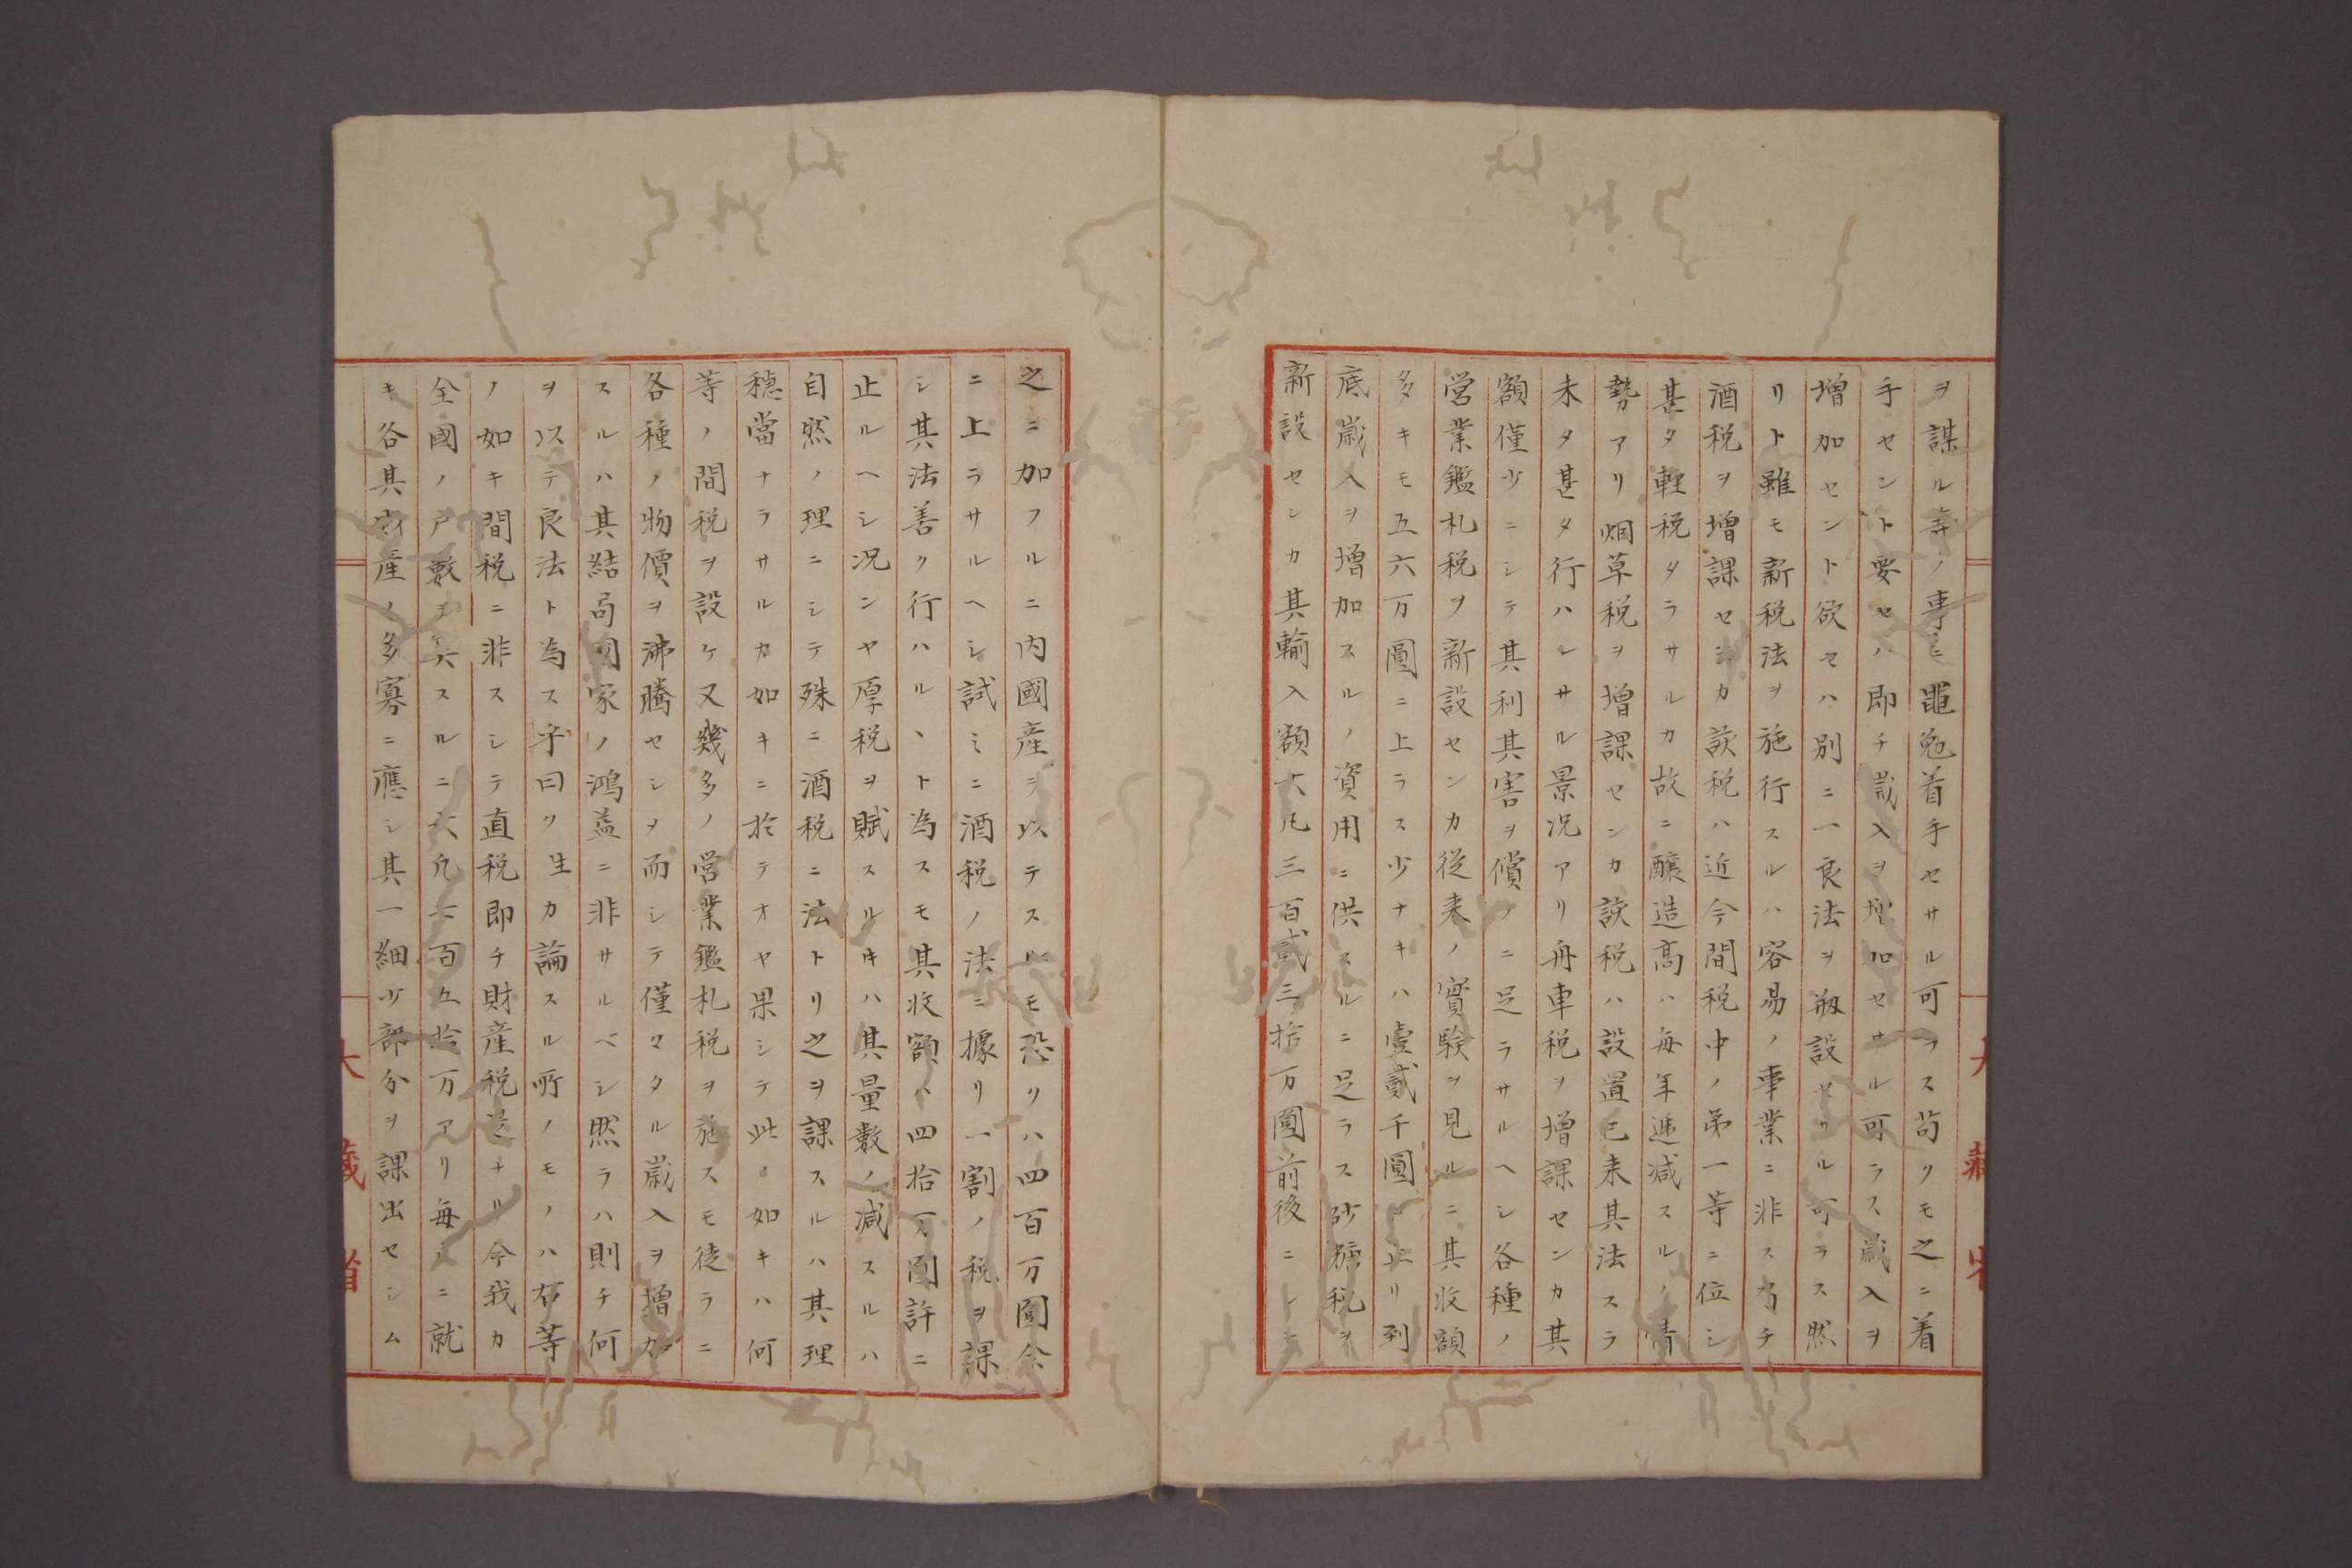 ヲ謀ル等ノ專ニ黽勉着手セサル可ラス苟クモ之ニ着
手セント要セハ即チ歳入ヲ増加セサル可ラス歳入ヲ
増加セント欲セハ別ニ一良法ヲ剏設セサル可ラス然
リト雖モ新税法ヲ施行スルハ容易ノ事業ニ非ス者チ
酒税ヲ増課センカ該税ハ近今間税中ノ弟一等ニ位シ
甚タ輕税タラサルカ故ニ醸造高ハ毎年逓减スルノ情
勢アリ烟草税ヲ増課センカ該税ハ設置已来其法スラ
未タ甚タ行ハレサル景况アリ舟車税ヲ増課センカ其
額僅少ニシテ其利其害ヲ償フニ足ラサルヘシ各種ノ
営業鑑札税ヲ新設センカ従来ノ實驗ヲ見ルニ其收額
多キモ五六万圓ニ上ラス少ナキハ壹貳千圓ニ止リ到
底歳入ヲ増加スルノ資用ニ供スルニ足ラス砂糖税ヲ
新設センカ其輸入額大凡三百貳三拾万圓前後ニシテ
之ニ加フルニ内國産ヲ以テスルモ恐クハ四百万圓余
ニ上ラサルヘシ試ミニ酒税ノ法ニ據リ一割ノ税ヲ課
シ其法善ク行ハルヽト為スモ其收額ハ四拾万圓許ニ
止ルヘシ况ンヤ厚税ヲ賦スルキハ其量數ノ减スルハ
自然ノ理ニシテ殊ニ酒税ニ法トリ之ヲ課スルハ其理
穏當ナラサルカ如キニ於テオヤ果シテ此ノ如キハ何
等ノ間税ヲ設ケ又幾多ノ営業鑑札税ヲ施スモ徒ラニ
各種ノ物價ヲ沸騰セシメ而シテ僅々タル歳入ヲ増加
スルハ其結局国家ノ鴻益ニ非サルベシ然ラハ則チ何
ヲ以テ良法ト為ス乎曰ク生カ論スル所ノモノハ右等
ノ如キ間税ニ非スシテ直税即チ財産税是ナリ今我カ
全國ノ戸數ヲ算スルニ大凡六百五拾万アリ毎戸ニ就
キ各其財産ノ多寡ニ應シ其一細少部分ヲ課出セシム
大藏省